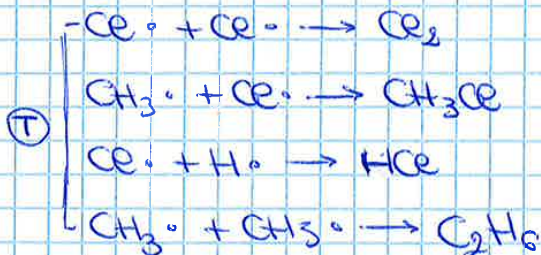 Cl• + Cl• → Cl₂
CH₃• + Cl• → CH₃Cl
Ⓣ
Cl• + H• → HCl
CH₃• + CH₃• → C₂H₆